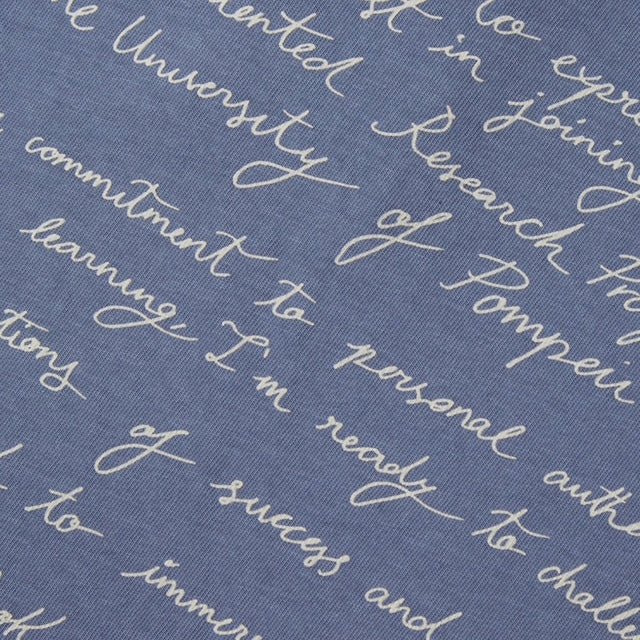 to expre
st in joining
mented Research Pro
the University of Pompeii
commitment to personal authe
learning, I'm ready to challe
tions of success and
to immer
ook